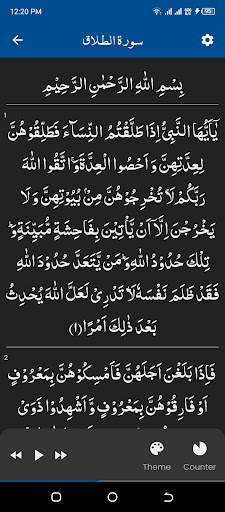 12:20 PM
سورة الطلاق
بِسْمِ اللهِ الرَّحْمٰنِ الرَّحِيْمِ
1
يٰۤاَيُّهَا النَّبِيُّ اِذَا طَلَّقْتُمُ النِّسَآءَ فَطَلِّقُوْهُنَّ
لِعِدَّتِهِنَّ وَاَحْصُوا الْعِدَّةَ ۚ وَاتَّقُوا اللهَ
رَبَّكُمْ ۚ لَا تُخْرِجُوْهُنَّ مِنْۢ بُيُوْتِهِنَّ وَلَا
يَخْرُجْنَ اِلَّاۤ اَنْ يَّاْتِيْنَ بِفَاحِشَةٍ مُّبَيِّنَةٍ ؕ وَ
تِلْكَ حُدُوْدُ اللهِ ؕ وَمَنْ يَّتَعَدَّ حُدُوْدَ اللهِ
فَقَدْ ظَلَمَ نَفْسَهٗ ؕ لَا تَدْرِيْ لَعَلَّ اللهَ يُحْدِثُ
بَعْدَ ذٰلِكَ اَمْرًا ﴿۱﴾
2
فَاِذَا بَلَغْنَ اَجَلَهُنَّ فَاَمْسِكُوْهُنَّ بِمَعْرُوْفٍ
اَوْ فَارِقُوْهُنَّ بِمَعْرُوْفٍ وَّاَشْهِدُوْا ذَوَيْ
Theme
Counter